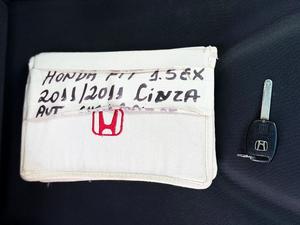 HONDA FIT 1.5EX
2011/2011 CINZA
AUT